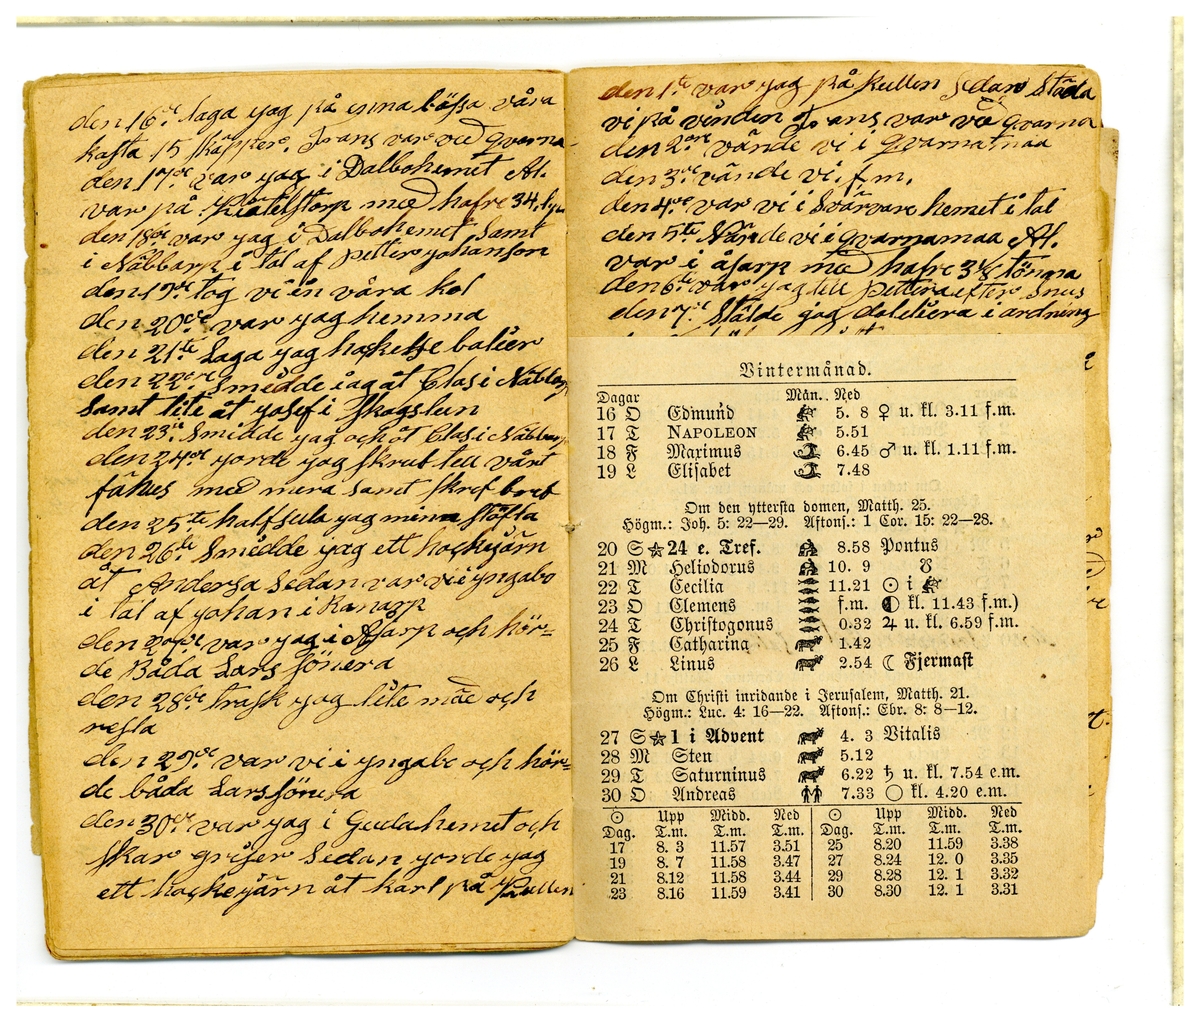 den 16de laga yag på enna bössa våra
kasta 15 skäpper. Frans var ved qvarna
den 17de var yag i Dalbohemet Al.
var på Kiatelstorp med hafre 34.
den 18de var yag i Dalbohemet samt
i Näbbarp i tal af petter yohanson
den 19de tog vi in våra kol
den 20de var yag hemma
den 21te Laga yag balier
den 22dre Smidde iag åt Clas i Näbbarp
samt lite åt yosef i Skogslun
den 23ie Smidde yag och åt Clas i Näbbarp
den 24de yorde yag skrubtea vårt
fähus med mera samt skref bref
den 25te halfsula yag minna stöfla
den 26te Smidde yag ett hackeyärn
åt Andersa Sedan var vi i yngabo
i tal af yohan i Ranarp
den 27de var yag i Afarp och hör=
de Båda Lars sönera
den 28de trask yag lite mäd och
resta
den 29de var vi i yngabo och hör=
de båda Larssönera
den 30de var yag i Gudahemet och
skar griser Sedan yorde yag
ett hackeyärn åt karl på Kullen
den 1te var yag på kullen Sedan Städa
vi på vinden Frans var vä qvarna
den 2dre vände vi i qvarnamaa
den 3de vände vi f.m.
den 4de var vi i Svarvarehemet i tal
den 5te Vände vi i qvarnamaa Al.
var i åsarp mäd hafre 3 1/8 tönna
den 6te var yag till pettera efter Snus
den 7de Stälde jag i ordning
Vintermånad.
Dagar Mån. Ned
16 O Edmund 5. 8 ♀ u. kl. 3.11 f.m.
17 T NAPOLEON 5.51
18 F Maximus 6.45 ♂ u. kl. 1.11 f.m.
19 L Elisabet 7.48
Om den yttersta domen, Matth. 25.
Högm.: Joh. 5: 22—29. Aftons.: 1 Cor. 15: 22—28.
20 S 24 e. Tref. 8.58 Pontus
21 M Heliodorus 10. 9 ☋
22 T Cecilia 11.21 ☉ i ♐
23 O Clemens f.m. ◐ kl. 11.43 f.m.)
24 T Christogonus 0.32 ♃ u. kl. 6.59 f.m.
25 F Catharina 1.42
26 L Linus 2.54 ☾ Fjermast
Om Christi inridande i Jerusalem, Matth. 21.
Högm.: Luc. 4: 16—22. Aftons.: Ebr. 8: 8—12.
27 S 1 i Advent 4. 3 Vitalis
28 M Sten 5.12
29 T Saturninus 6.22 ♄ u. kl. 7.54 e.m.
30 O Andreas 7.33 ○ kl. 4.20 e.m.
☉ Upp Midd. Ned ☉ Upp Midd. Ned
Dag. T.m. T.m. T.m. Dag. T.m. T.m. T.m.
17 8. 3 11.57 3.51 25 8.20 11.59 3.38
19 8. 7 11.58 3.47 27 8.24 12. 0 3.35
21 8.12 11.58 3.44 29 8.28 12. 1 3.32
23 8.16 11.59 3.41 30 8.30 12. 1 3.31